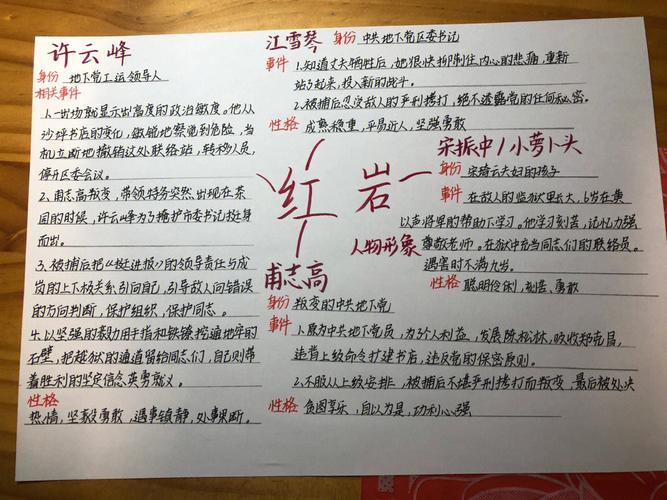 许云峰
身份 地下党工运领导人
相关事件
1.一出场就显示出高度的政治敏度。他从
沙坪书店的变化，敏锐地察觉到危险，当
机立断地撤销这处联络站，转移人员，
停开区委会议。
2、甫志高叛变，带领特务突然出现在茶
园的时候，许云峰为了掩护市委书记挺身
而出。
3、被捕后把《挺进报》的领导责任与成
岗的上下级关系引向自己，引导敌人向错误
的方向判断，保护组织，保护同志。
4、以坚强的毅力用手指和铁镣挖通地牢的
石壁，把越狱的通道留给同志们，自己则带
着胜利的坚定信念英勇就义。
性格
热情，坚毅勇敢，遇事镇静，处事果断。
江雪琴 身份 中共地下党区委书记
事件 1.知道丈夫牺牲后，她很快抑制住内心的悲痛，重新
站了起来，投入新的战斗。
2.被捕后忍受敌人的严刑拷打，绝不透露党的任何秘密。
性格 成熟稳重，平易近人，坚强勇敢
红岩
人物形象
宋振中/小萝卜头
身份 宋绮云夫妇的孩子
事件 在敌人的监狱里长大，6岁在黄
以声将军的帮助下学习。他学习刻苦，记忆力强
尊敬老师。在狱中充当同志们的联络员。
遇害时不满九岁。
性格 聪明伶俐，刻苦、勇敢
甫志高
身份 叛变的中共地下党
事件 1.原为中共地下党员，为了个人利益，发展陈松林，吸收郑克昌，
违背上级命令打建书店，违反党的保密原则。
2、不服从上级安排，被捕后不堪严刑拷打而叛变，最后被处决
性格 贪图享乐，自以为是，功利心强